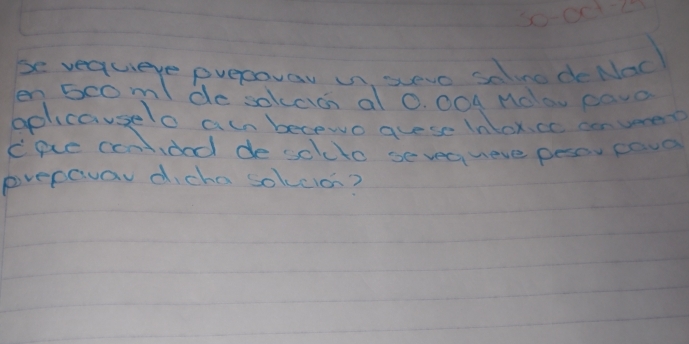 30-Oct-24
Se requiere preparar un suero salino de NaCl
en 500 ml de solución al 0.004 Molar para
aplicarselo a un becerro que se intoxico con veneno
¿Que cantidad de soluto se requiere pesar para
preparar dicha solución?